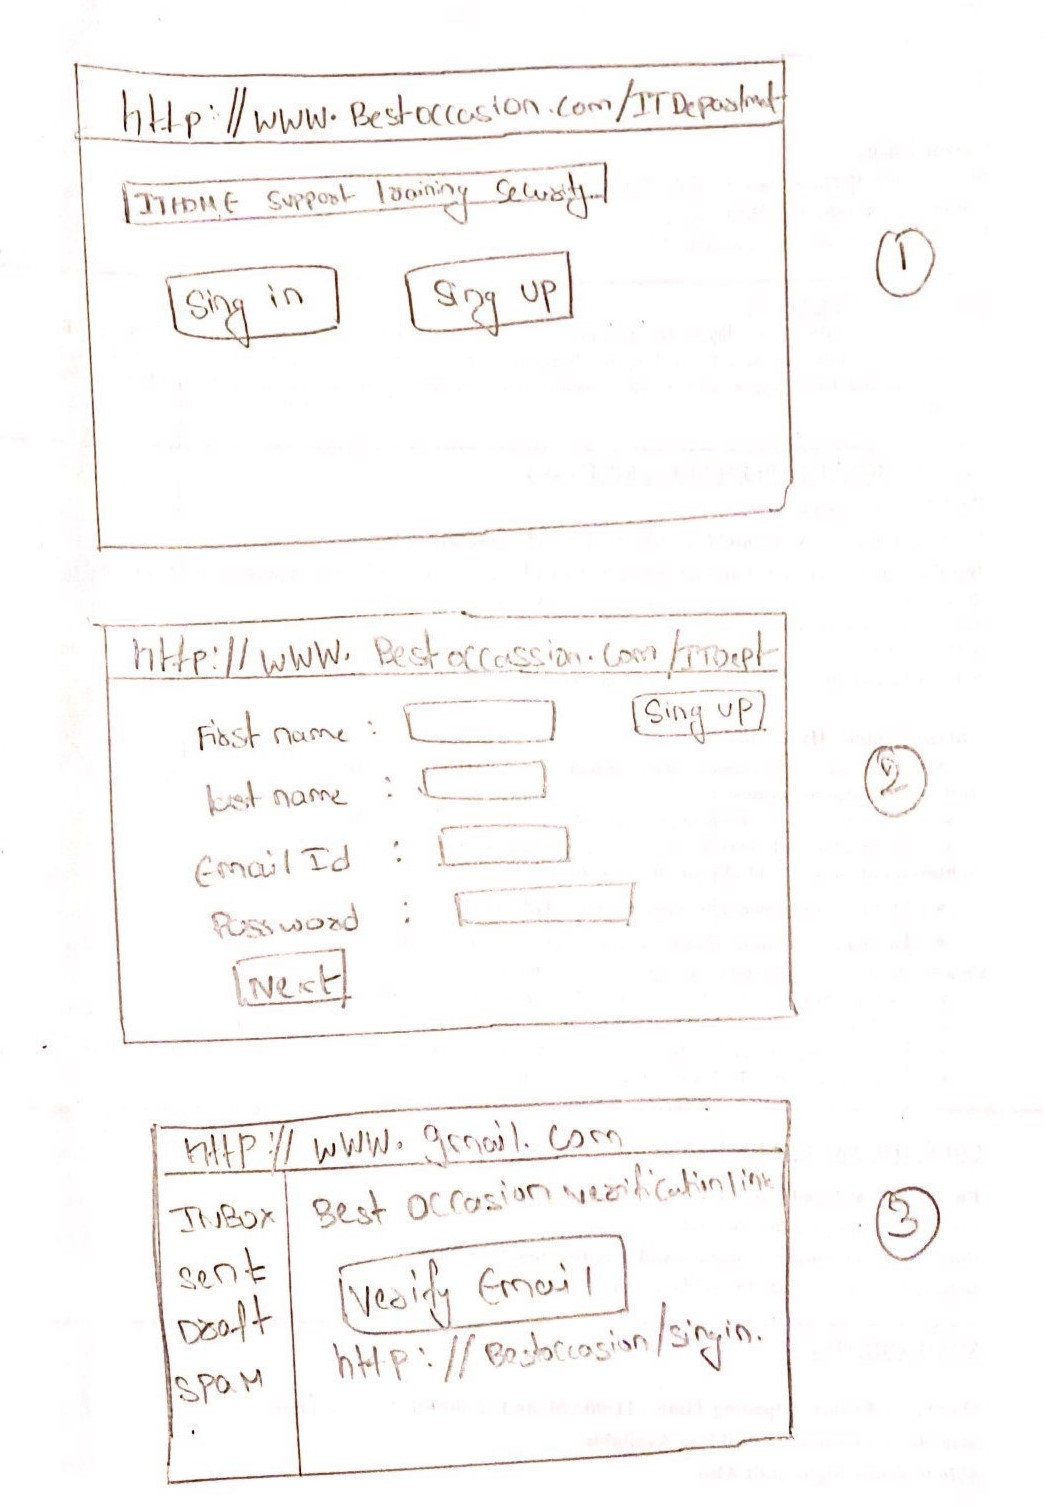 http://www.Bestoccasion.com/ITDepartment
ITHOME Support Training Security..
Sing in
Sing up
1
http://www.Bestoccassion.com/ITDept
First name :
Sing up
last name :
2
Email Id :
Password :
Next
http://www.gmail.com
INBOX
Best Occasion verification link
3
sent
Verify Email
Draft
http://Bestoccasion/singin.
SPAM